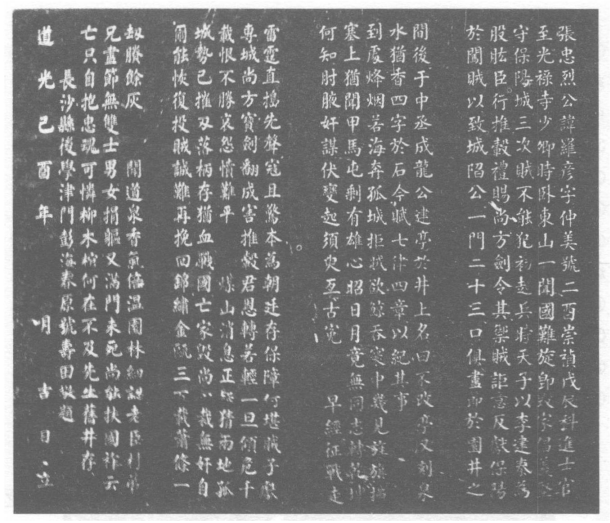 張忠烈公諱羅彥字仲美號二酉崇禎戊辰科進士官
至光祿寺少卿時臥東山一聞國難旋即毀家倡義
守保陽城三次賊不能犯初起兵時天子以李建泰為
股肱臣行推轂禮賜尚方劍令其禦賊詎意反獻保陽
於闖賊以致城陷公一門二十三口俱盡節於園井之
間後于中丞成龍公建亭於井上名曰不改亭又刻泉
水猶香四字於石今賦七律四章以紀其事
到處烽烟若海奔孤城拒賊欲鯨吞寒中幾見旌旗
塞上猶聞甲馬屯剩有雄心昭日月竟無同志轉乾坤
何知肘腋奸謀伏變起須臾亙古冤 早經征戰走
雷霆直搗先聲寇且驚本為朝廷存保障何堪賊子獻
專城尚方寶劍翻成害推轂君恩轉若輕一旦傾危千
載恨不勝哀怨憤難平 煤山消息正疑猜兩地孤
城勢已摧及落柄存猶血戰國亡家毀尚載無奸自
爾能恢復投賊誠難再挽回錦繡金甌三百載蕭條一
刼賸餘灰 聞道泉香氣倍溫園林細認老臣
兄盡節無雙士男女捐軀又滿門未死尚能扶國祚云
亡只自抱忠魂可憐柳木棺何在不及先生舊井存
長沙縣後學津門彭海春原號壽田敬題
道光己酉年 明 古日立